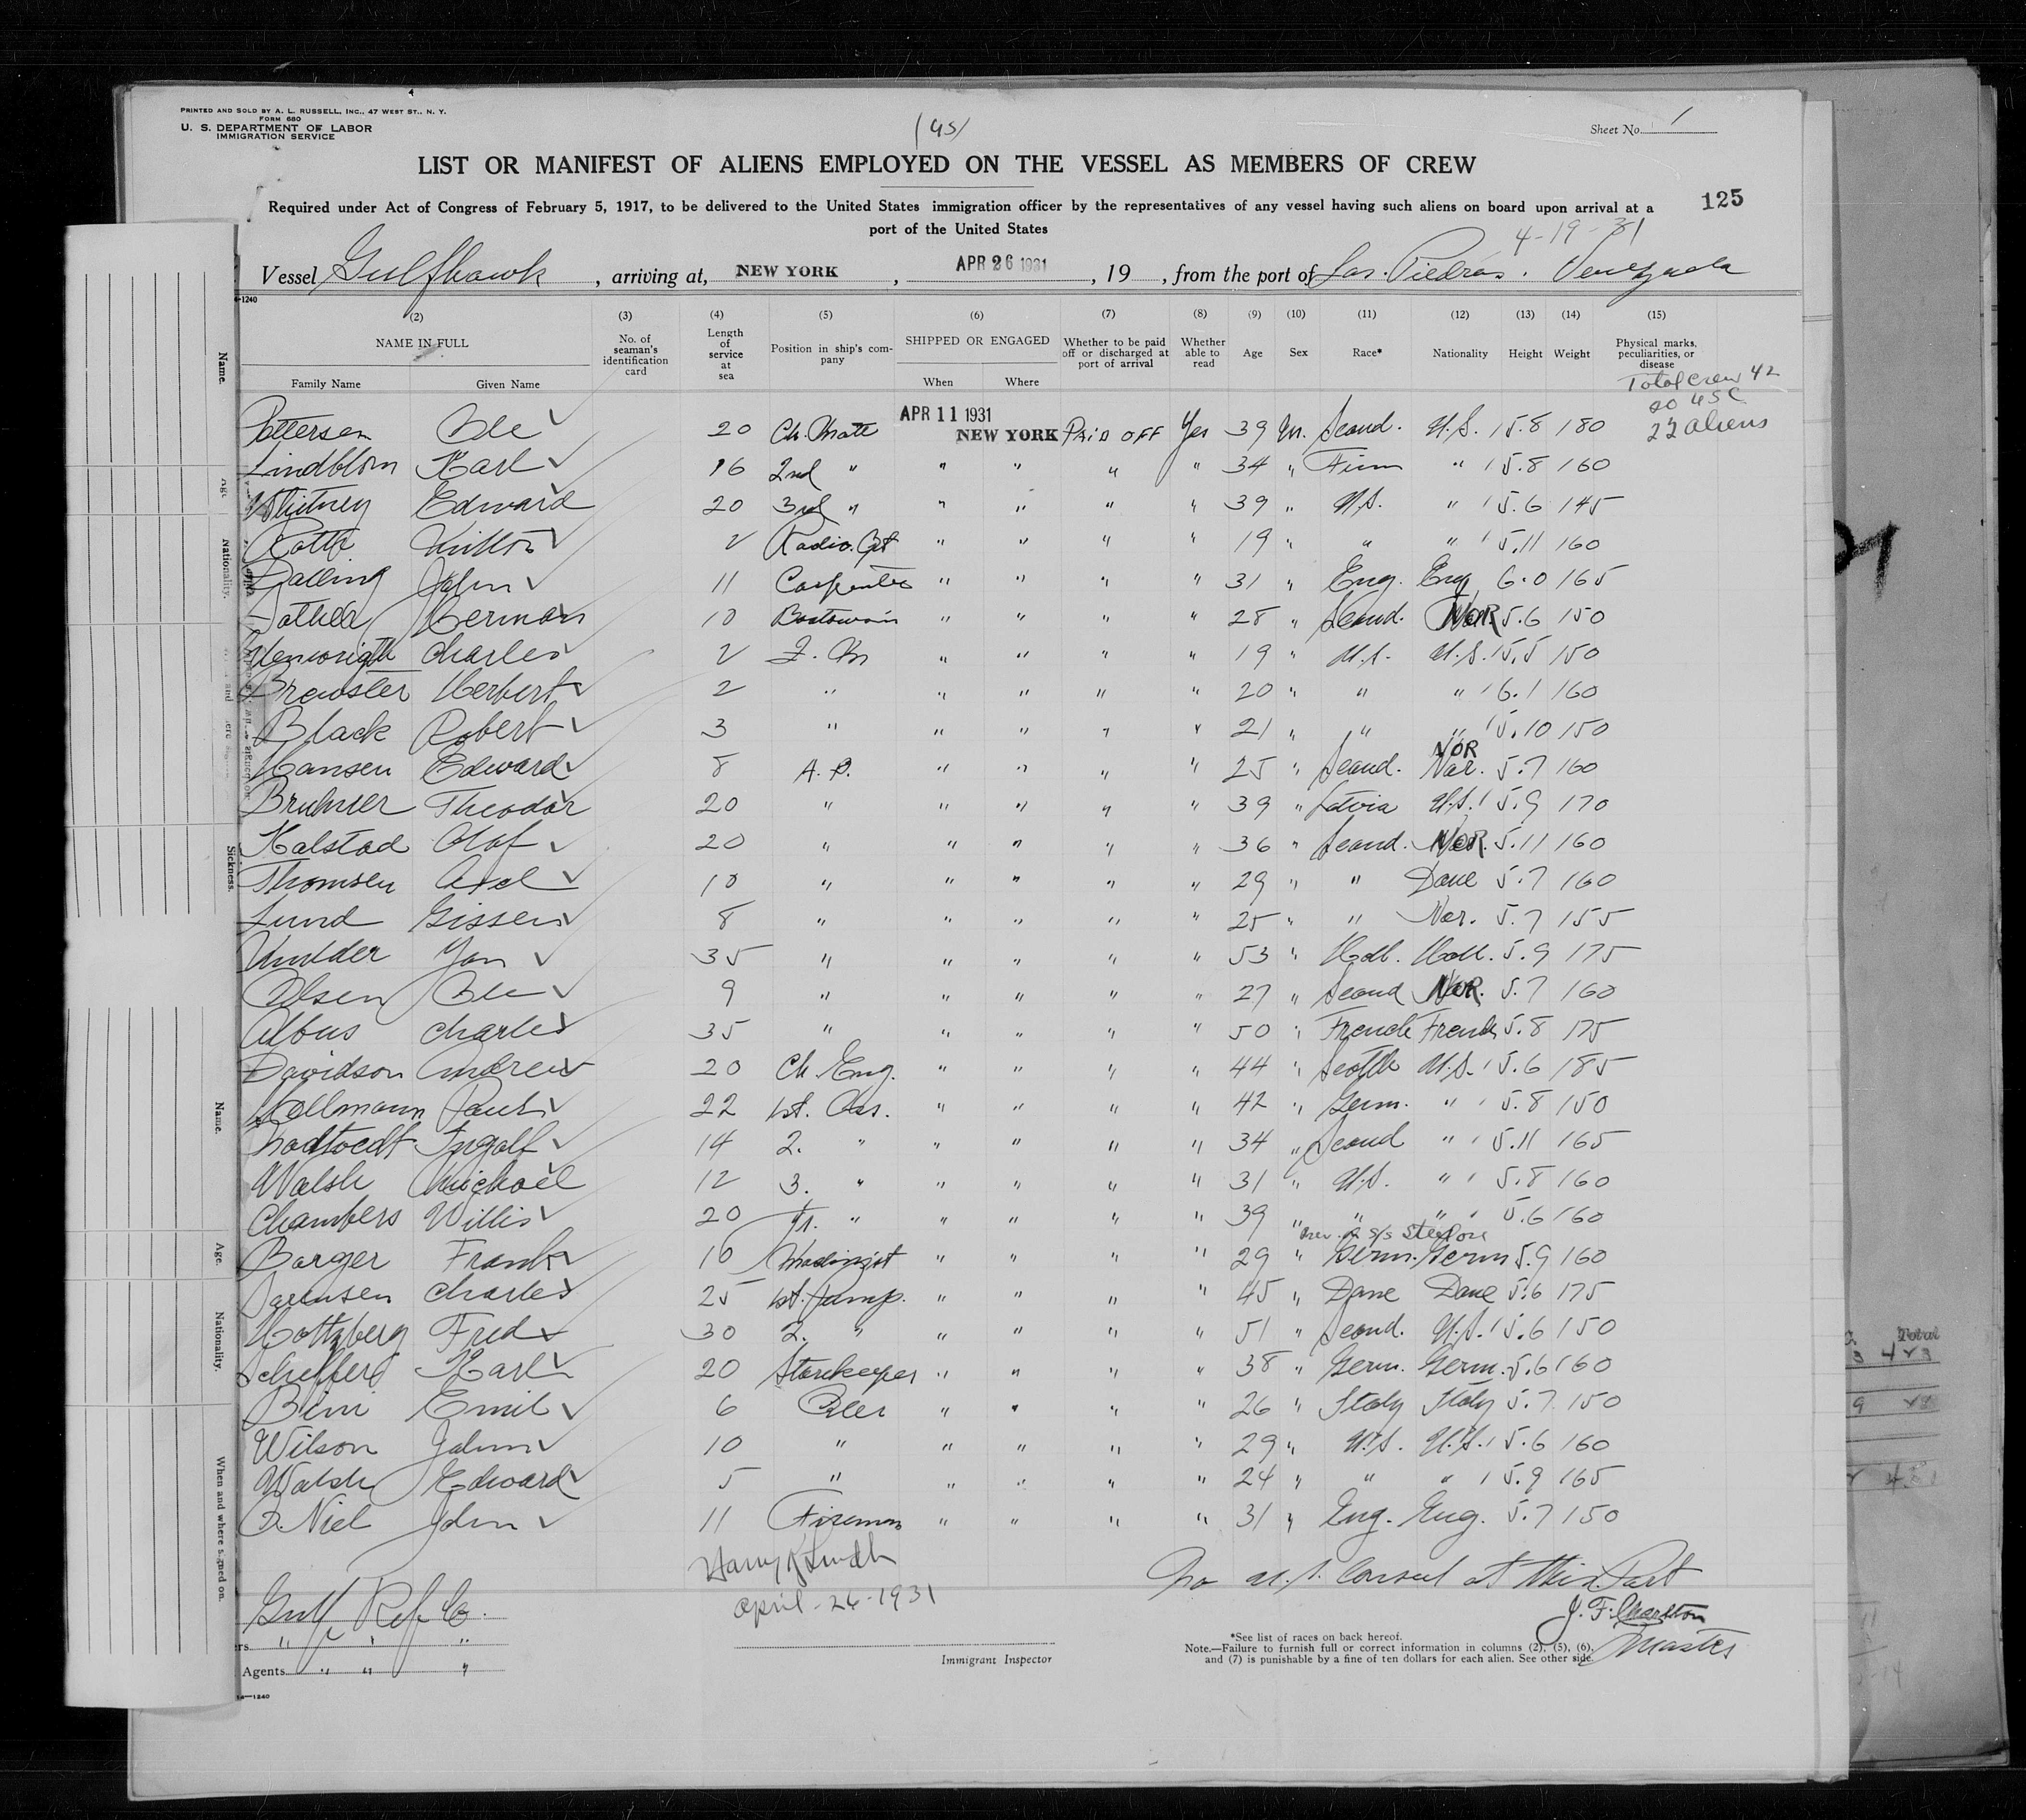 PRINTED AND SOLD BY A. L. RUSSELL, INC., 47 WEST ST., N. Y.
FORM 680
U. S. DEPARTMENT OF LABOR
IMMIGRATION SERVICE
Sheet No. 1
LIST OR MANIFEST OF ALIENS EMPLOYED ON THE VESSEL AS MEMBERS OF CREW
125
Required under Act of Congress of February 5, 1917, to be delivered to the United States immigration officer by the representatives of any vessel having such aliens on board upon arrival at a
port of the United States
4-19-31
Vessel Gulfhawk, arriving at, NEW YORK, APR 26 1931, 19, from the port of Las Piedras. Venezuela
(2) (3) (4) (5) (6) (7) (8) (9) (10) (11) (12) (13) (14) (15)
NAME IN FULL No. of seaman's identification card Length of service at sea Position in ship's company SHIPPED OR ENGAGED Whether to be paid off or discharged at port of arrival Whether able to read Age Sex Race* Nationality Height Weight Physical marks, peculiarities, or disease
Family Name Given Name When Where
Total crew 42
20 USC
22 aliens
Pettersen Ole 20 Ch. Mate APR 11 1931 NEW YORK PAID OFF Yes 39 M. Scand. U.S. 5.8 180
Lindblom Karl 16 2nd " " " " " 34 " Finn " 5.8 160
Whitney Edward 20 3rd " " " " " 39 " U.S. " 5.6 145
Roth Milton 2 Radio. Opt " " " " 19 " " " 5.11 160
Dalling John 11 Carpenter " " " " 31 " Eng. Eng 6.0 165
Herman 10 Boatswain " " " " 28 " Scand. NOR 5.6 150
Charles 2 " " " " 19 " U.S. U.S. 5.5 150
Brewster Herbert 2 " " " " " 20 " " " 6.1 160
Black Robert 3 " " " " " 21 " " " 5.10 150
Hansen Edward 8 A.B. " " " " 25 " Scand. Nor. NOR 5.7 160
Bruhner Theodor 20 " " " " " 39 " Latvia U.S. 5.9 170
Kalstad Olaf 20 " " " " " 36 " Scand. NOR. 5.11 160
Thomsen Axel 10 " " " " " 29 " " Dane 5.7 160
Lund Gissen 8 " " " " " 25 " " Nor. 5.7 155
Mulder Jan 35 " " " " " 53 " Holl. Holl. 5.9 175
Olsen Ole 9 " " " " " 27 " Scand NOR. 5.7 160
Albus Charles 35 " " " " " 50 " French French 5.8 175
Davidson Andrew 20 Ch. Eng. " " " " 44 " U.S. 5.6 185
Kollmann Paul 22 1st. Ass. " " " " 42 " Germ. " 5.8 150
Ingolf 14 2. " " " " " 34 " Scand " 5.11 165
Walsh Michael 12 3. " " " " " 31 " U.S. " 5.8 160
Chambers Willis 20 Jr. " " " " " 39 " " " 5.6 160
Barger Frank 10 Machinist " " " " 29 " Germ. Germ 5.9 160
Sorensen Charles 25 1st. Pump. " " " " 45 " Dane Dane 5.6 175
Holtzberg Fred 30 2. " " " " " 51 " Scand. U.S. 5.6 150
Scheffers Karl 20 Storekeeper " " " " 38 " Germ. Germ. 5.6 160
Bini Emil 6 Oiler " " " " 26 " Italy Italy 5.7 150
Wilson John 10 " " " " " 29 " U.S. U.S. 5.6 160
Walsh Edward 5 " " " " " 24 " " " 5.9 165
O.Niel John 11 Fireman " " " " 31 " Eng. Eng. 5.7 150
April-26-1931
No U.S. Consul at this Port
J. F. Charlton
Master
Gulf Ref Co.
rs " " "
Agents " " "
Immigrant Inspector
*See list of races on back hereof.
Note.—Failure to furnish full or correct information in columns (2), (5), (6),
and (7) is punishable by a fine of ten dollars for each alien. See other side.
14—1240
Name.
Nationality.
Sickness.
Name.
Age.
Nationality.
When and where signed on.
Total